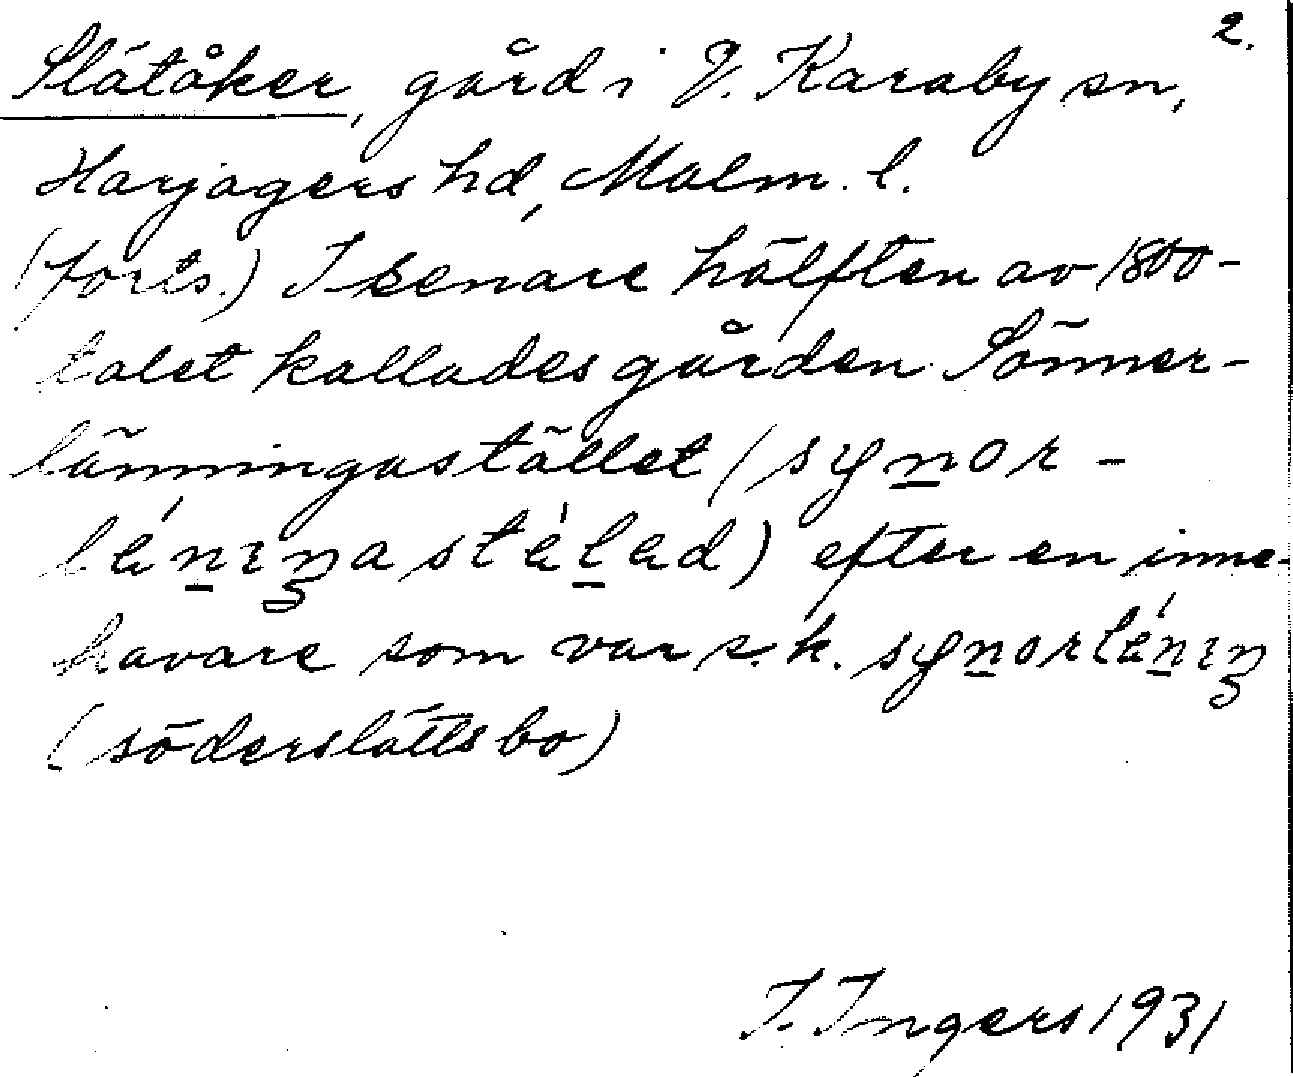 2.
Slätåker, gård i V. Karaby sn,
Harjagers hd, Malm. l.
(forts.) I senare hälften av 1800-
talet kallades gården Sönner-
länningastället (syn̲or-
lén̲ıŋastèl̲ad) efter en inne-
havare som var s.k. syn̲orlén̲ıŋ
(söderslättsbo)
I. Ingers 1931